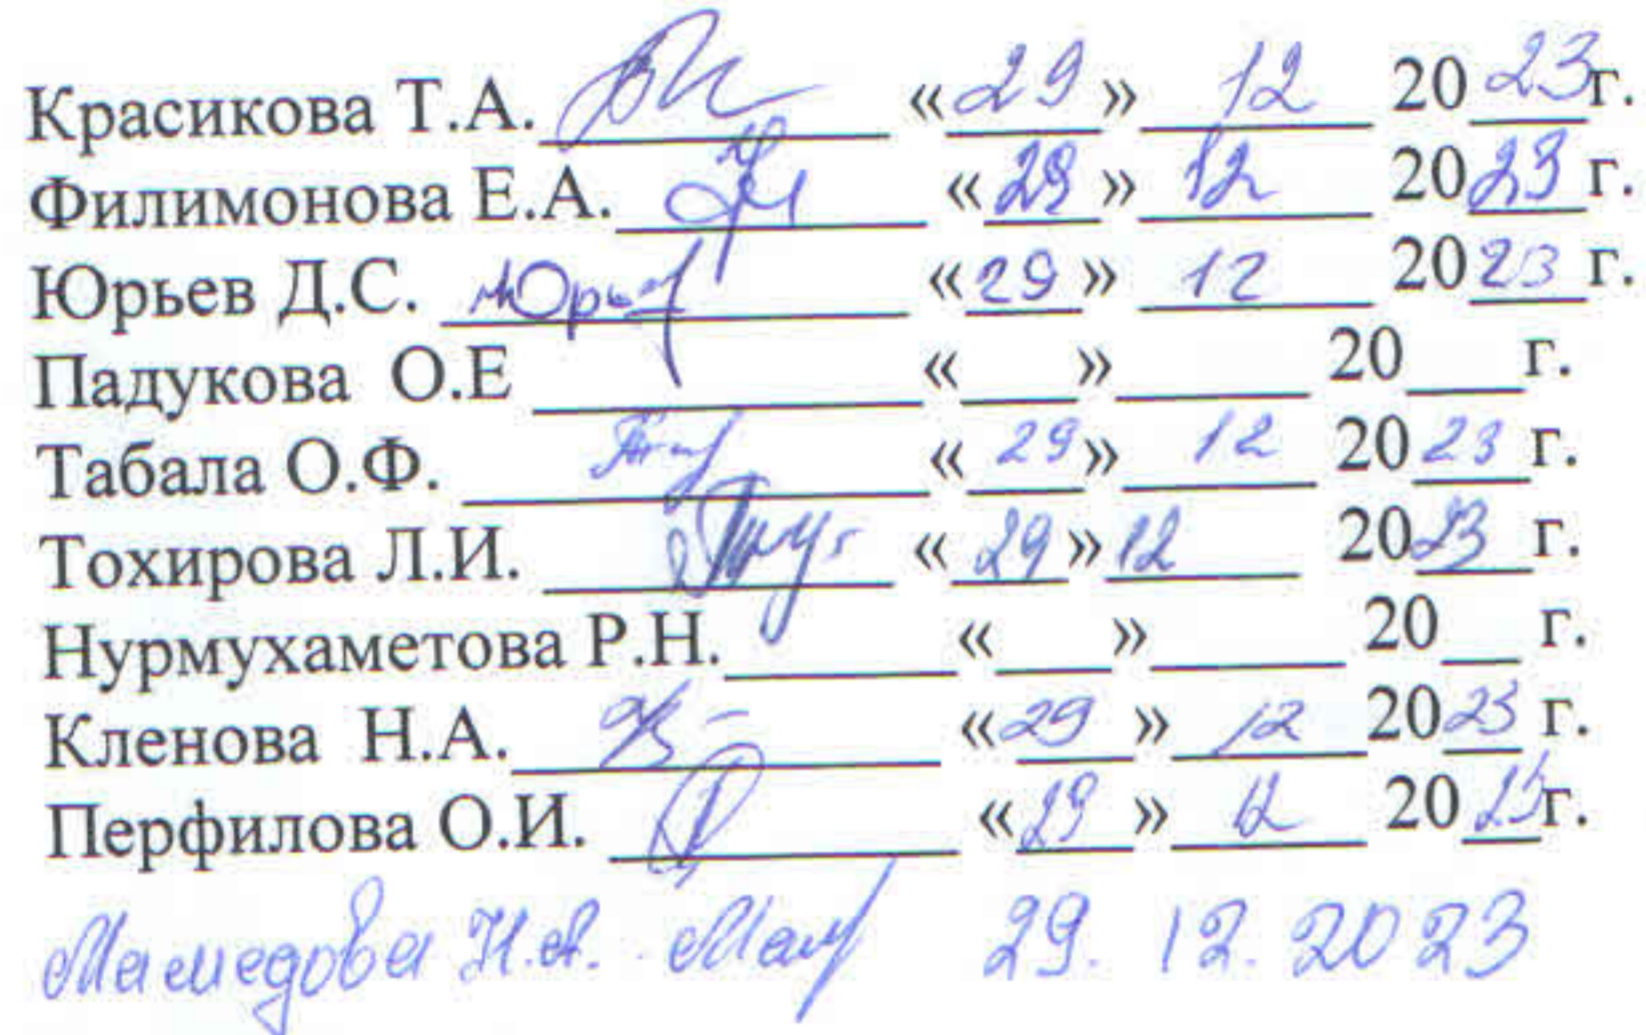 Красикова Т.А. «29» 12 2023г.
Филимонова Е.А. «29» 12 2023 г.
Юрьев Д.С. «29» 12 2023 г.
Падукова О.Е «___»______ 20___г.
Табала О.Ф. «29» 12 2023 г.
Тохирова Л.И. «29» 12 2023 г.
Нурмухаметова Р.Н. «___»______ 20___ г.
Кленова Н.А. «29» 12 2023 г.
Перфилова О.И. «29» 12 2023г.
Мамедова Н.А. 29. 12. 2023